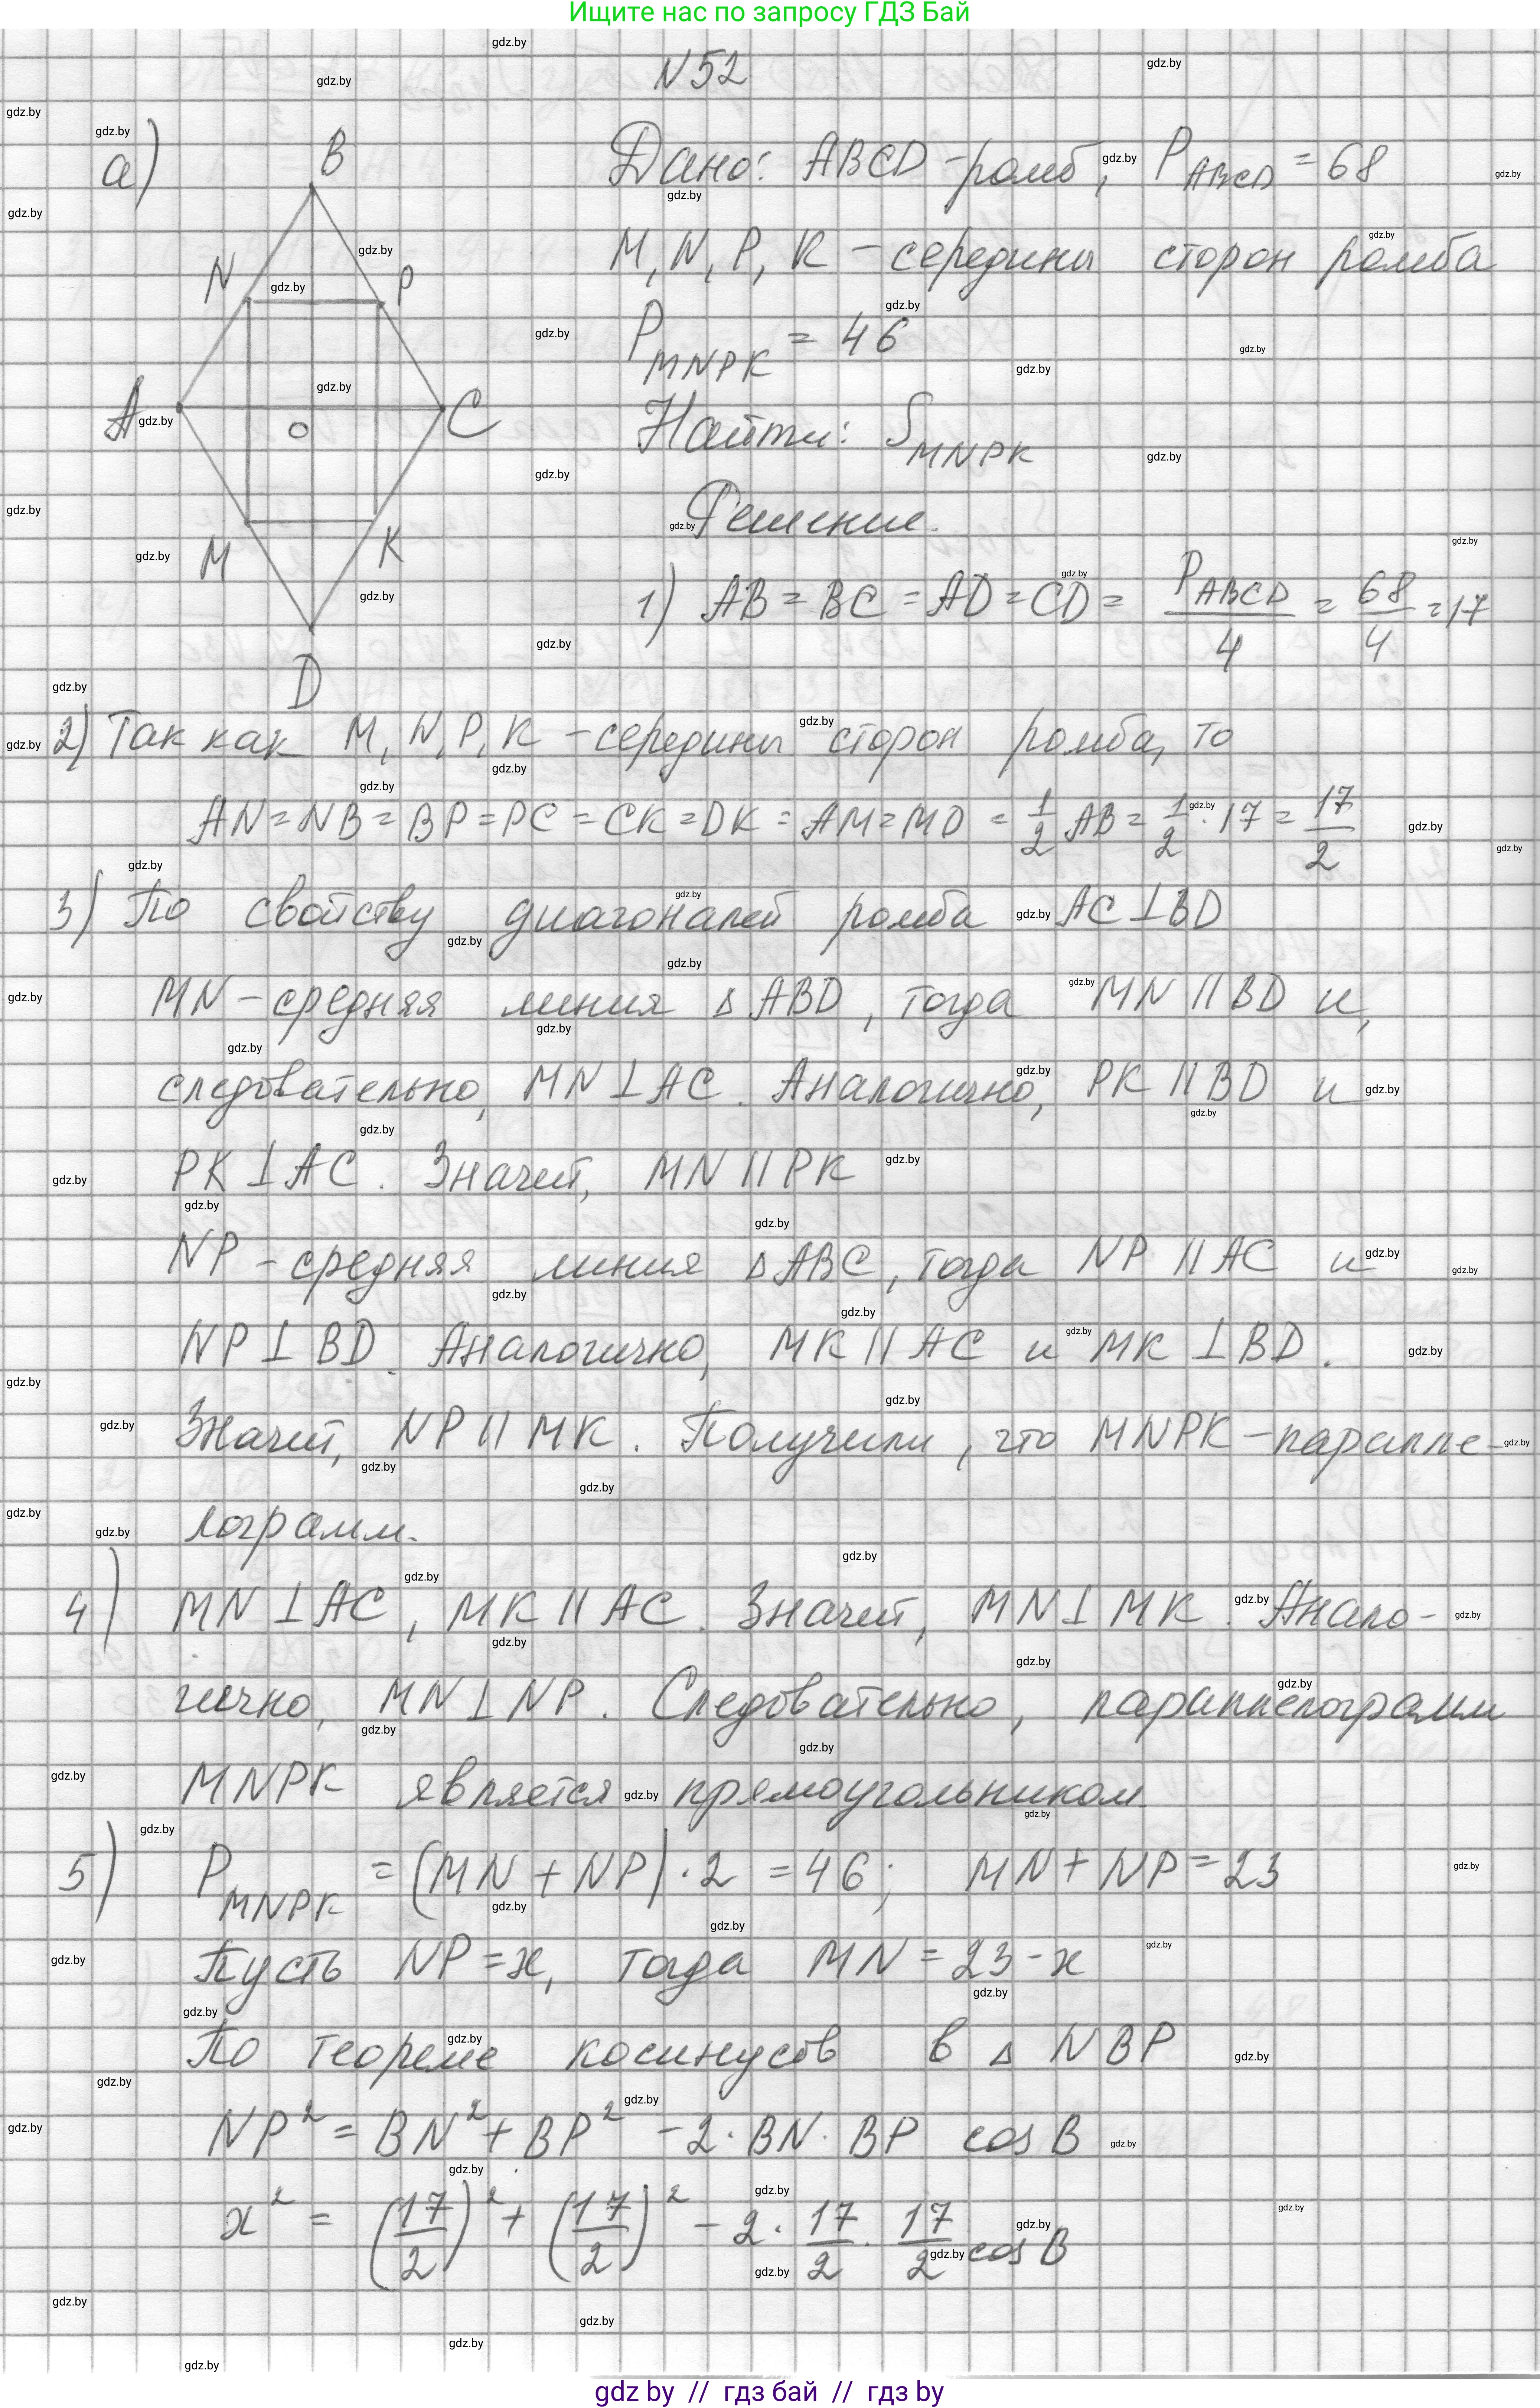 Ищите нас по запросу ГДЗ Бай
N 52
а)
B
N
P
A
O
C
M
K
D
Дано: ABCD - ромб, P_ABCD = 68
M, N, P, K - середины сторон ромба
P_MNPK = 46
Найти: S_MNPK
Решение.
1) AB = BC = AD = CD = P_ABCD/4 = 68/4 = 17
2) Так как M, N, P, K - середины сторон ромба, то
AN = NB = BP = PC = CK = DK = AM = MD = 1/2 AB = 1/2 · 17 = 17/2
3) По свойству диагоналей ромба AC ⊥ BD
MN - средняя линия △ABD, тогда MN || BD и,
следовательно, MN ⊥ AC. Аналогично, PK || BD и
PK ⊥ AC. Значит, MN || PK
NP - средняя линия △ABC, тогда NP || AC и
NP ⊥ BD. Аналогично, MK || AC и MK ⊥ BD.
Значит, NP || MK. Получили, что MNPK - паралле-
лограмм.
4) MN ⊥ AC, MK || AC. Значит, MN ⊥ MK. Анало-
гично, MN ⊥ NP. Следовательно, параллелограмм
MNPK является прямоугольником.
5) P_MNPK = (MN + NP) · 2 = 46; MN + NP = 23
Пусть NP = x, тогда MN = 23 - x
По теореме косинусов в △ NBP
NP² = BN² + BP² - 2 · BN · BP cos B
x² = (17/2)² + (17/2)² - 2 · 17/2 · 17/2 cos B
gdz by // гдз бай // гдз by